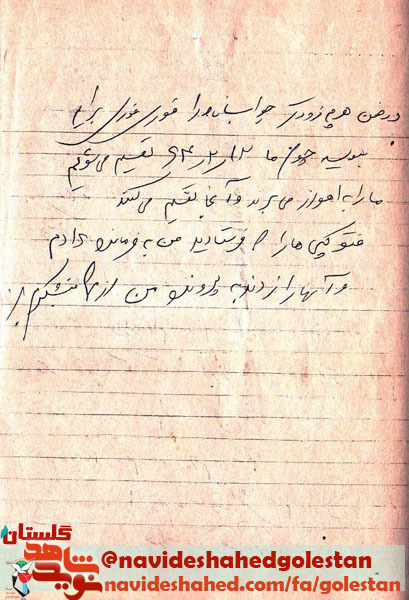 در ضمن هر چه زودتر جواب نامه را فوری فوری برایم
بنویسید چون ما ۱۲ر۲ر۶۴ تقسیم می‌شویم
ما را به اهواز می‌برند و آنجا تقسیم می‌کنند
فتوکپی ها را که فرستادید من به فرمانده دادم
و آنها را زدند به پرونده من از شما متشکرم
نوید شاهد گلستان
@navideshahedgolestan
navideshahed.com/fa/golestan